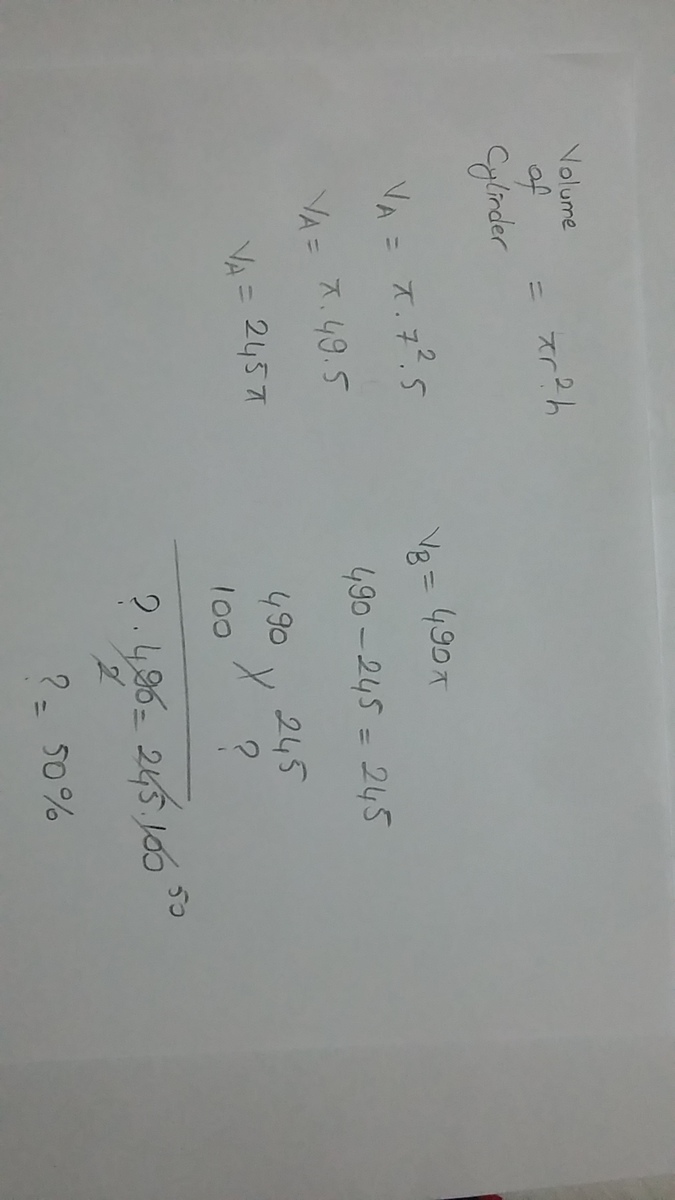 Volume
of
Cylinder = πr².h
V_A = π.7².5
V_A = π.49.5
V_A = 245π
V_B = 490π
490 - 245 = 245
490 245
100 ?
?.490 = 245.100 50
2
?= 50%